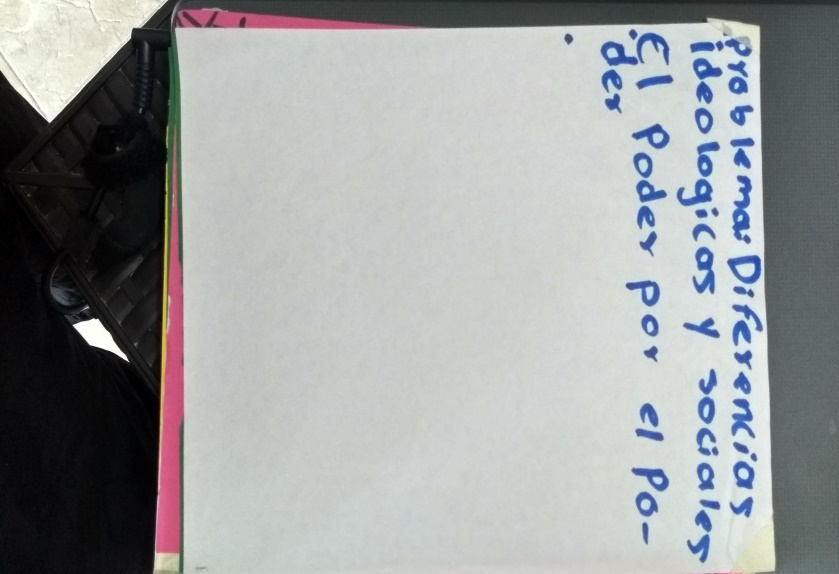 Problema: Diferencias
ideologicas y sociales
• El Poder por el Po-
der
•